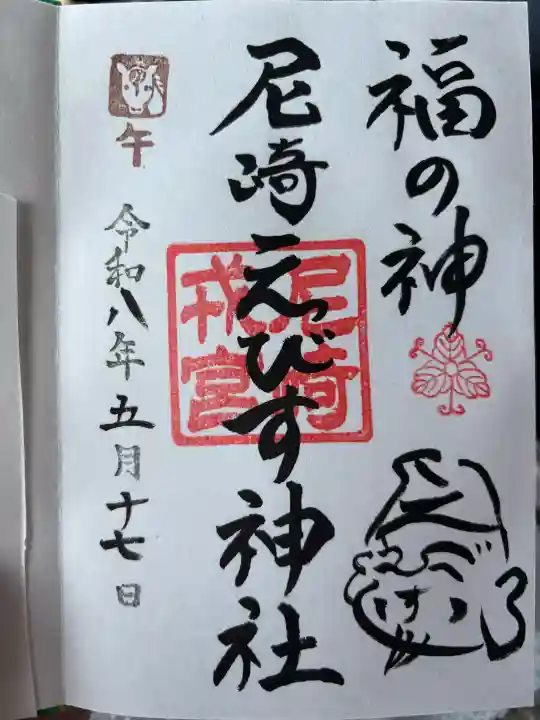 福の神
尼崎えびす神社
尼崎
戎宮
午
令和八年五月十七日